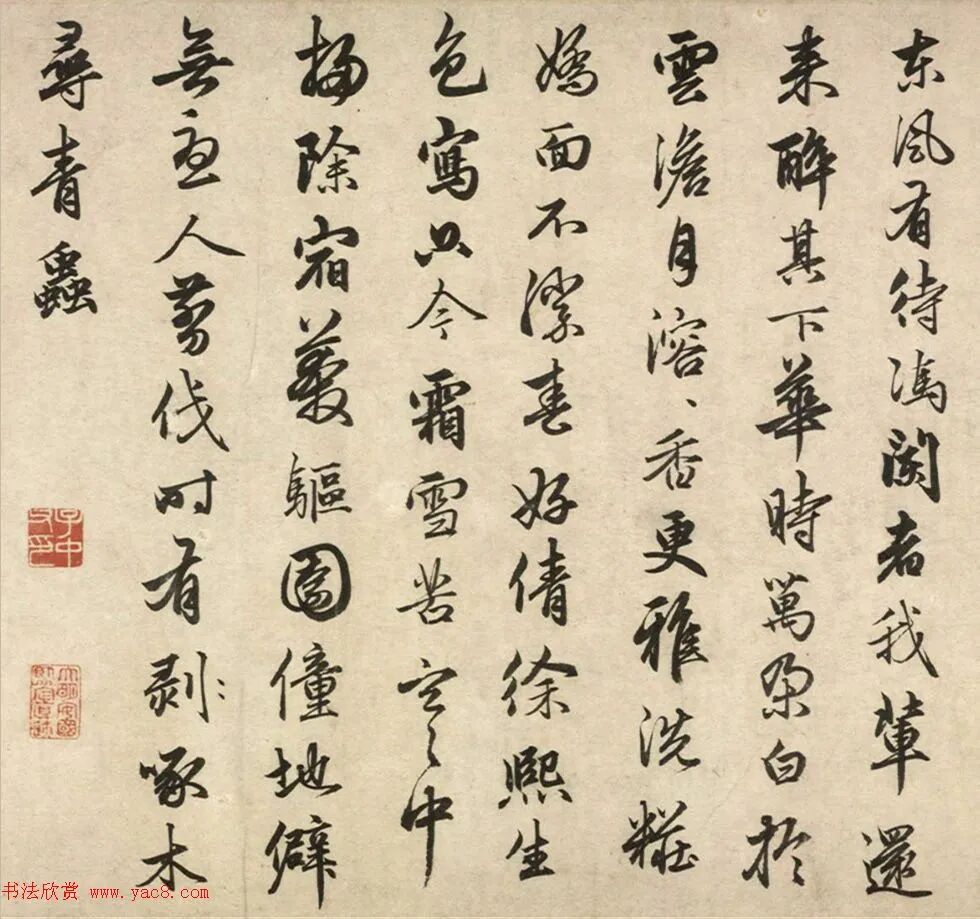 东风有待馮闵者我輩還
来醉其下華時萬朶白於
雲澹月溶〻香更雅洗糚
嬌面不潔春好倩徐熙生
色寫只今霜雪苦空〻中
掃除宿蔓驅園僮地僻
無忽人剪伐时有剥〻啄木
尋青蟲
书法欣赏 www.yac8.com